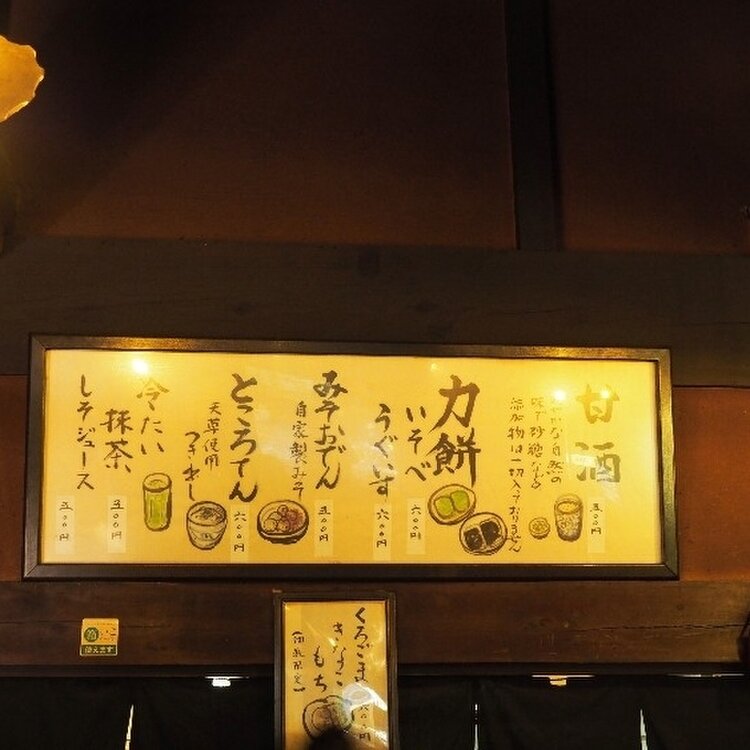 甘酒
な自然の
味で砂糖などの
添加物は一切入っておりません
五〇〇円
力餅
いそべ
六〇〇円
うぐいす
六〇〇円
みそおでん
自家製みそ
五〇〇円
ところてん
六〇〇円
天草使用
つき出し
冷たい
抹茶
五〇〇円
しそジュース
五〇〇円
くろごま
きなこ
もち
使えます